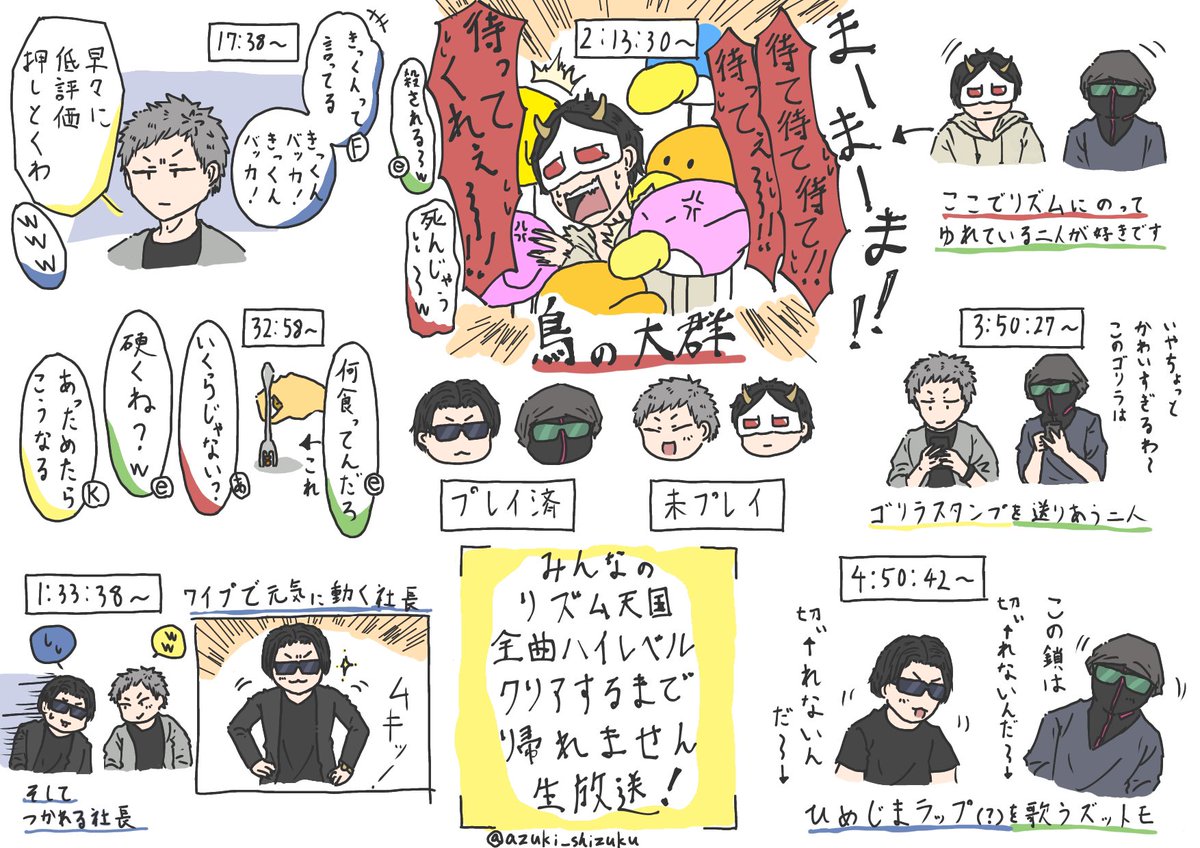 17:38〜
早々に
低評価
押しとくわ
www
きっくんって
言ってる
きっくん
バッカ!
きっくん
バッカ!
F
2:13:30〜
待って
くれぇ〜!!
殺されるぅw
e
死んじゃう
〜w
待て待て待て!!
待ってぇ〜!!
まーまーま!!
鳥の大群
ここでリズムにのって
ゆれている二人が好きです
32:58〜
何食ってんだろ
e
←これ
いくらじゃない?
あ
硬くね?w
e
あっためたら
こうなる
K
プレイ済
未プレイ
3:50:27〜
いやちょっと
かわいすぎるわ〜
このゴリラは
ゴリラスタンプを送りあう二人
1:33:38〜
ワイプで元気に動く社長
ムキッ
ww
そして
つかれる社長
みんなの
リズム天国
全曲ハイレベル
クリアするまで
帰れません
生放送!
@azuki_shizuku
4:50:42〜
この鎖は
切↑れないんだ〜↓
切↑れないん
だ〜↓
ひめじまラップ(?)を歌うズットモ